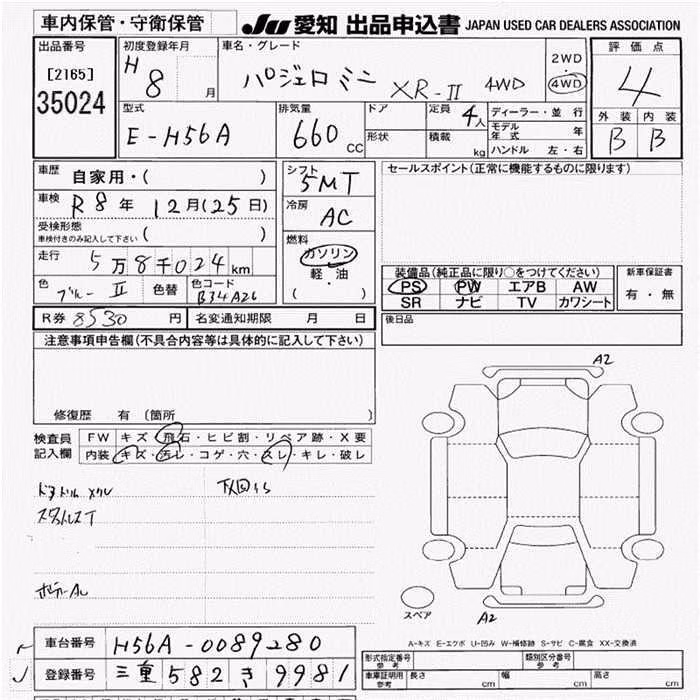 車内保管・守衛保管
JU 愛知 出品申込書 JAPAN USED CAR DEALERS ASSOCIATION
出品番号
[2165]
35024
初度登録年月
H 8 月
車名・グレード
パジェロ ミニ XR-II 4WD
2WD
4WD
評価点
4
外装 内装
B B
型式
E-H56A
排気量
660 CC
ドア
形状
定員 4人
積載 kg
ディーラー・並行
モデル年式 年
ハンドル 左・右
車歴 自家用・( )
車検 R8年 12月(25日)
受検形態
車検付きのみ記入して下さい ( )
走行 5万8千024km
色 ブルー II 色替 色コード B34A26
シフト
5MT
冷房
AC
燃料
ガソリン
軽・油
( )
セールスポイント(正常に機能するものに限ります)
装備品(純正品に限り○をつけてください)
PS PW エアB AW
SR ナビ TV カワシート
新車保証書
有・無
後日品
R券 8530 円 名変通知期限 月 日
注意事項申告欄(不具合内容等は具体的に記入して下さい)
修復歴 有 (箇所 )
検査員記入欄
FW キズ・飛石・ヒビ割・リペア跡・X要
内装 キズ・汚レ・コゲ・穴・スレ・キレ・破レ
スタットレスT
A2
A2
スペア
A-キズ E-エクボ U-凹み W-補修跡 S-サビ C-腐食 XX-交換済
車台番号 H56A-0089280
登録番号 三重 582 き 9981
形式指定番号 参考
類別区分番号 参考
車庫証明用 参考 長さ cm 幅 cm 高さ cm